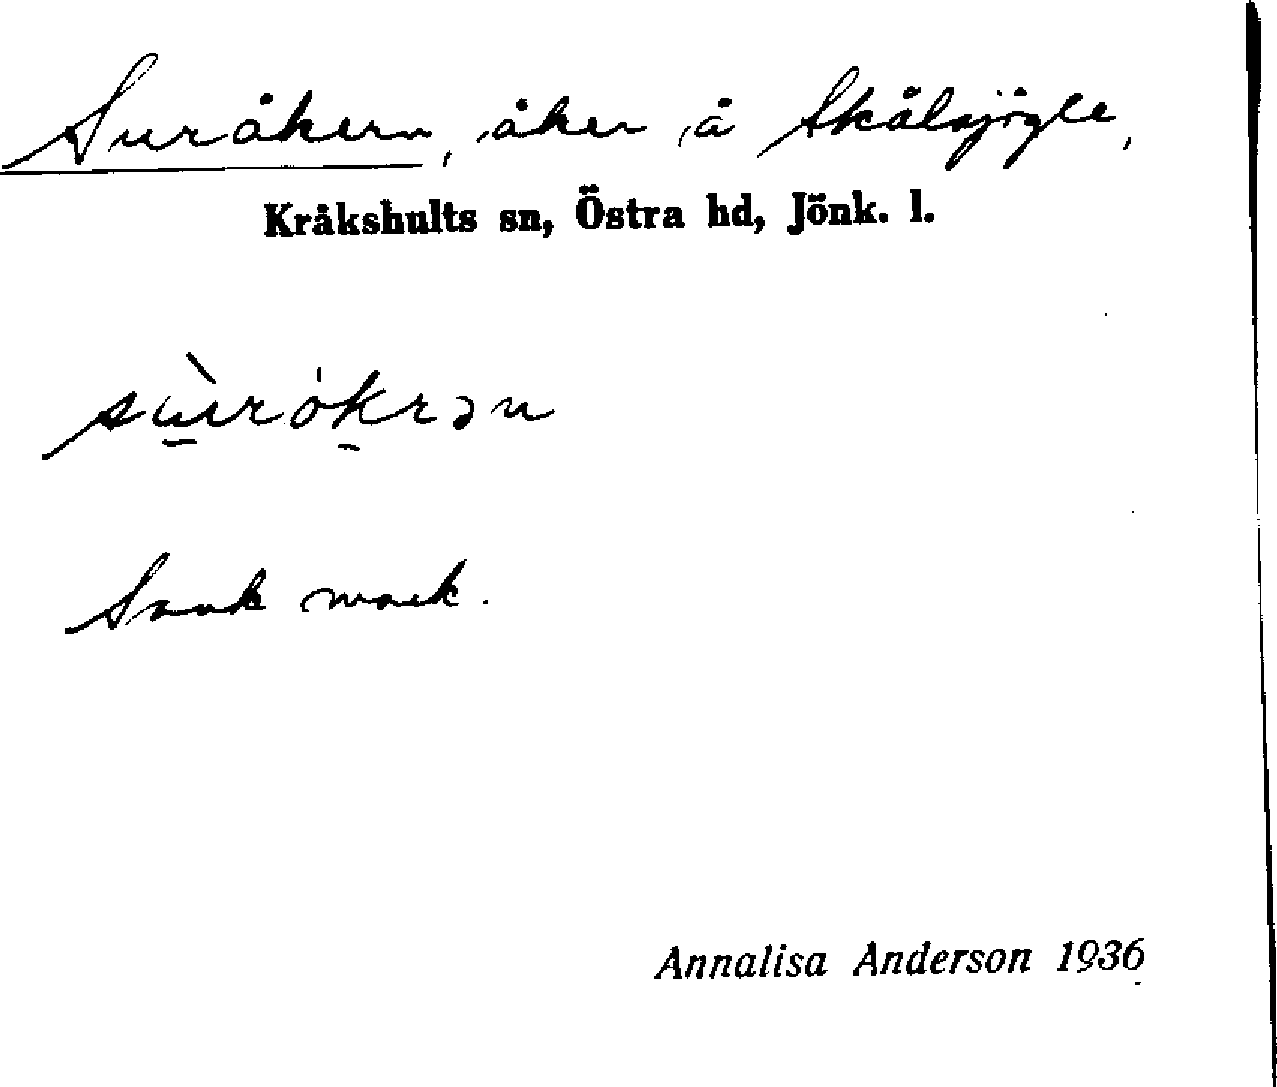 Suråkern, åker å Skålsjögle,
Kråkshults sn, Östra hd, Jönk. l.
sùrókrən
Sank mark.
Annalisa Anderson 1936